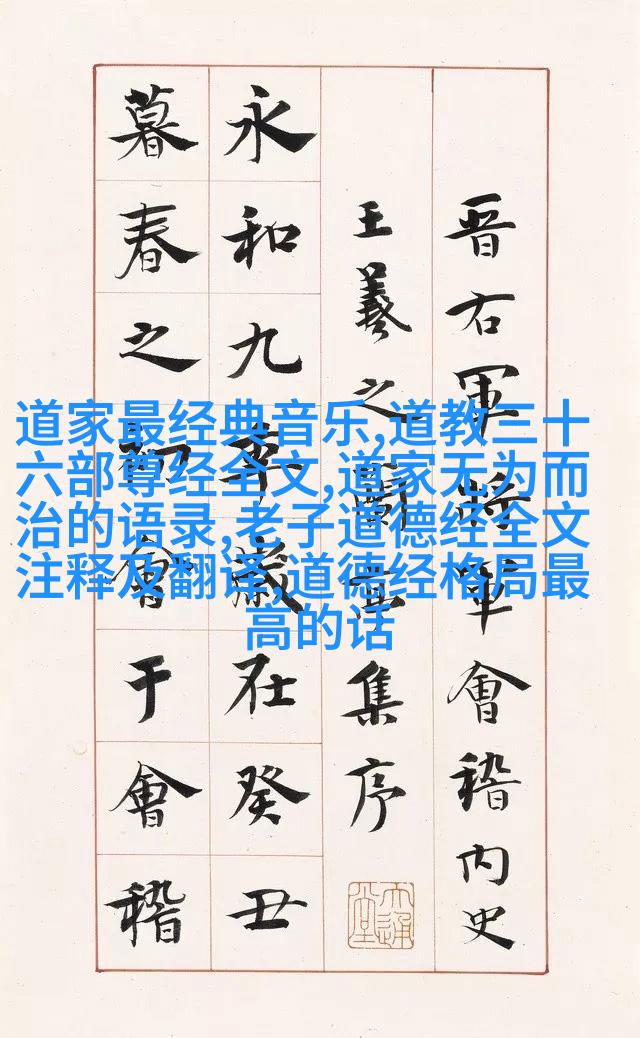 晋右軍將軍會稽内史
王羲之蘭亭集序
永和九年歲在癸丑
暮春之初會于會稽
道家最经典音乐,道教三十
六部尊经全文,道家无为而
治的语录,老子道德经全文
注释及翻译,道德经格局最
高的话